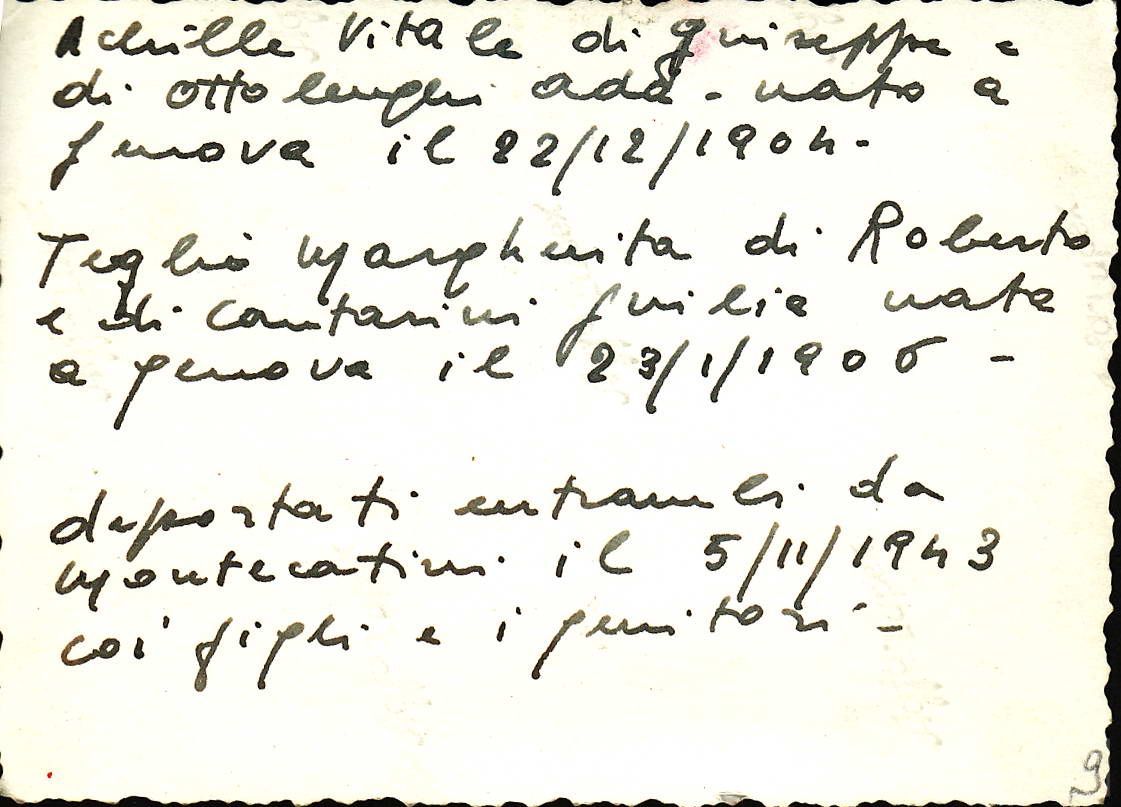 Achille Vitale di Giuseppe e
di Ottolenghi Ada - nato a
Genova il 22/12/1904 -
Teglio Margherita di Roberto
e di Contarini Giulia nata
a Genova il 23/1/1906 -
deportati entrambi da
Montecatini il 5/11/1943
coi figli e i genitori -
9